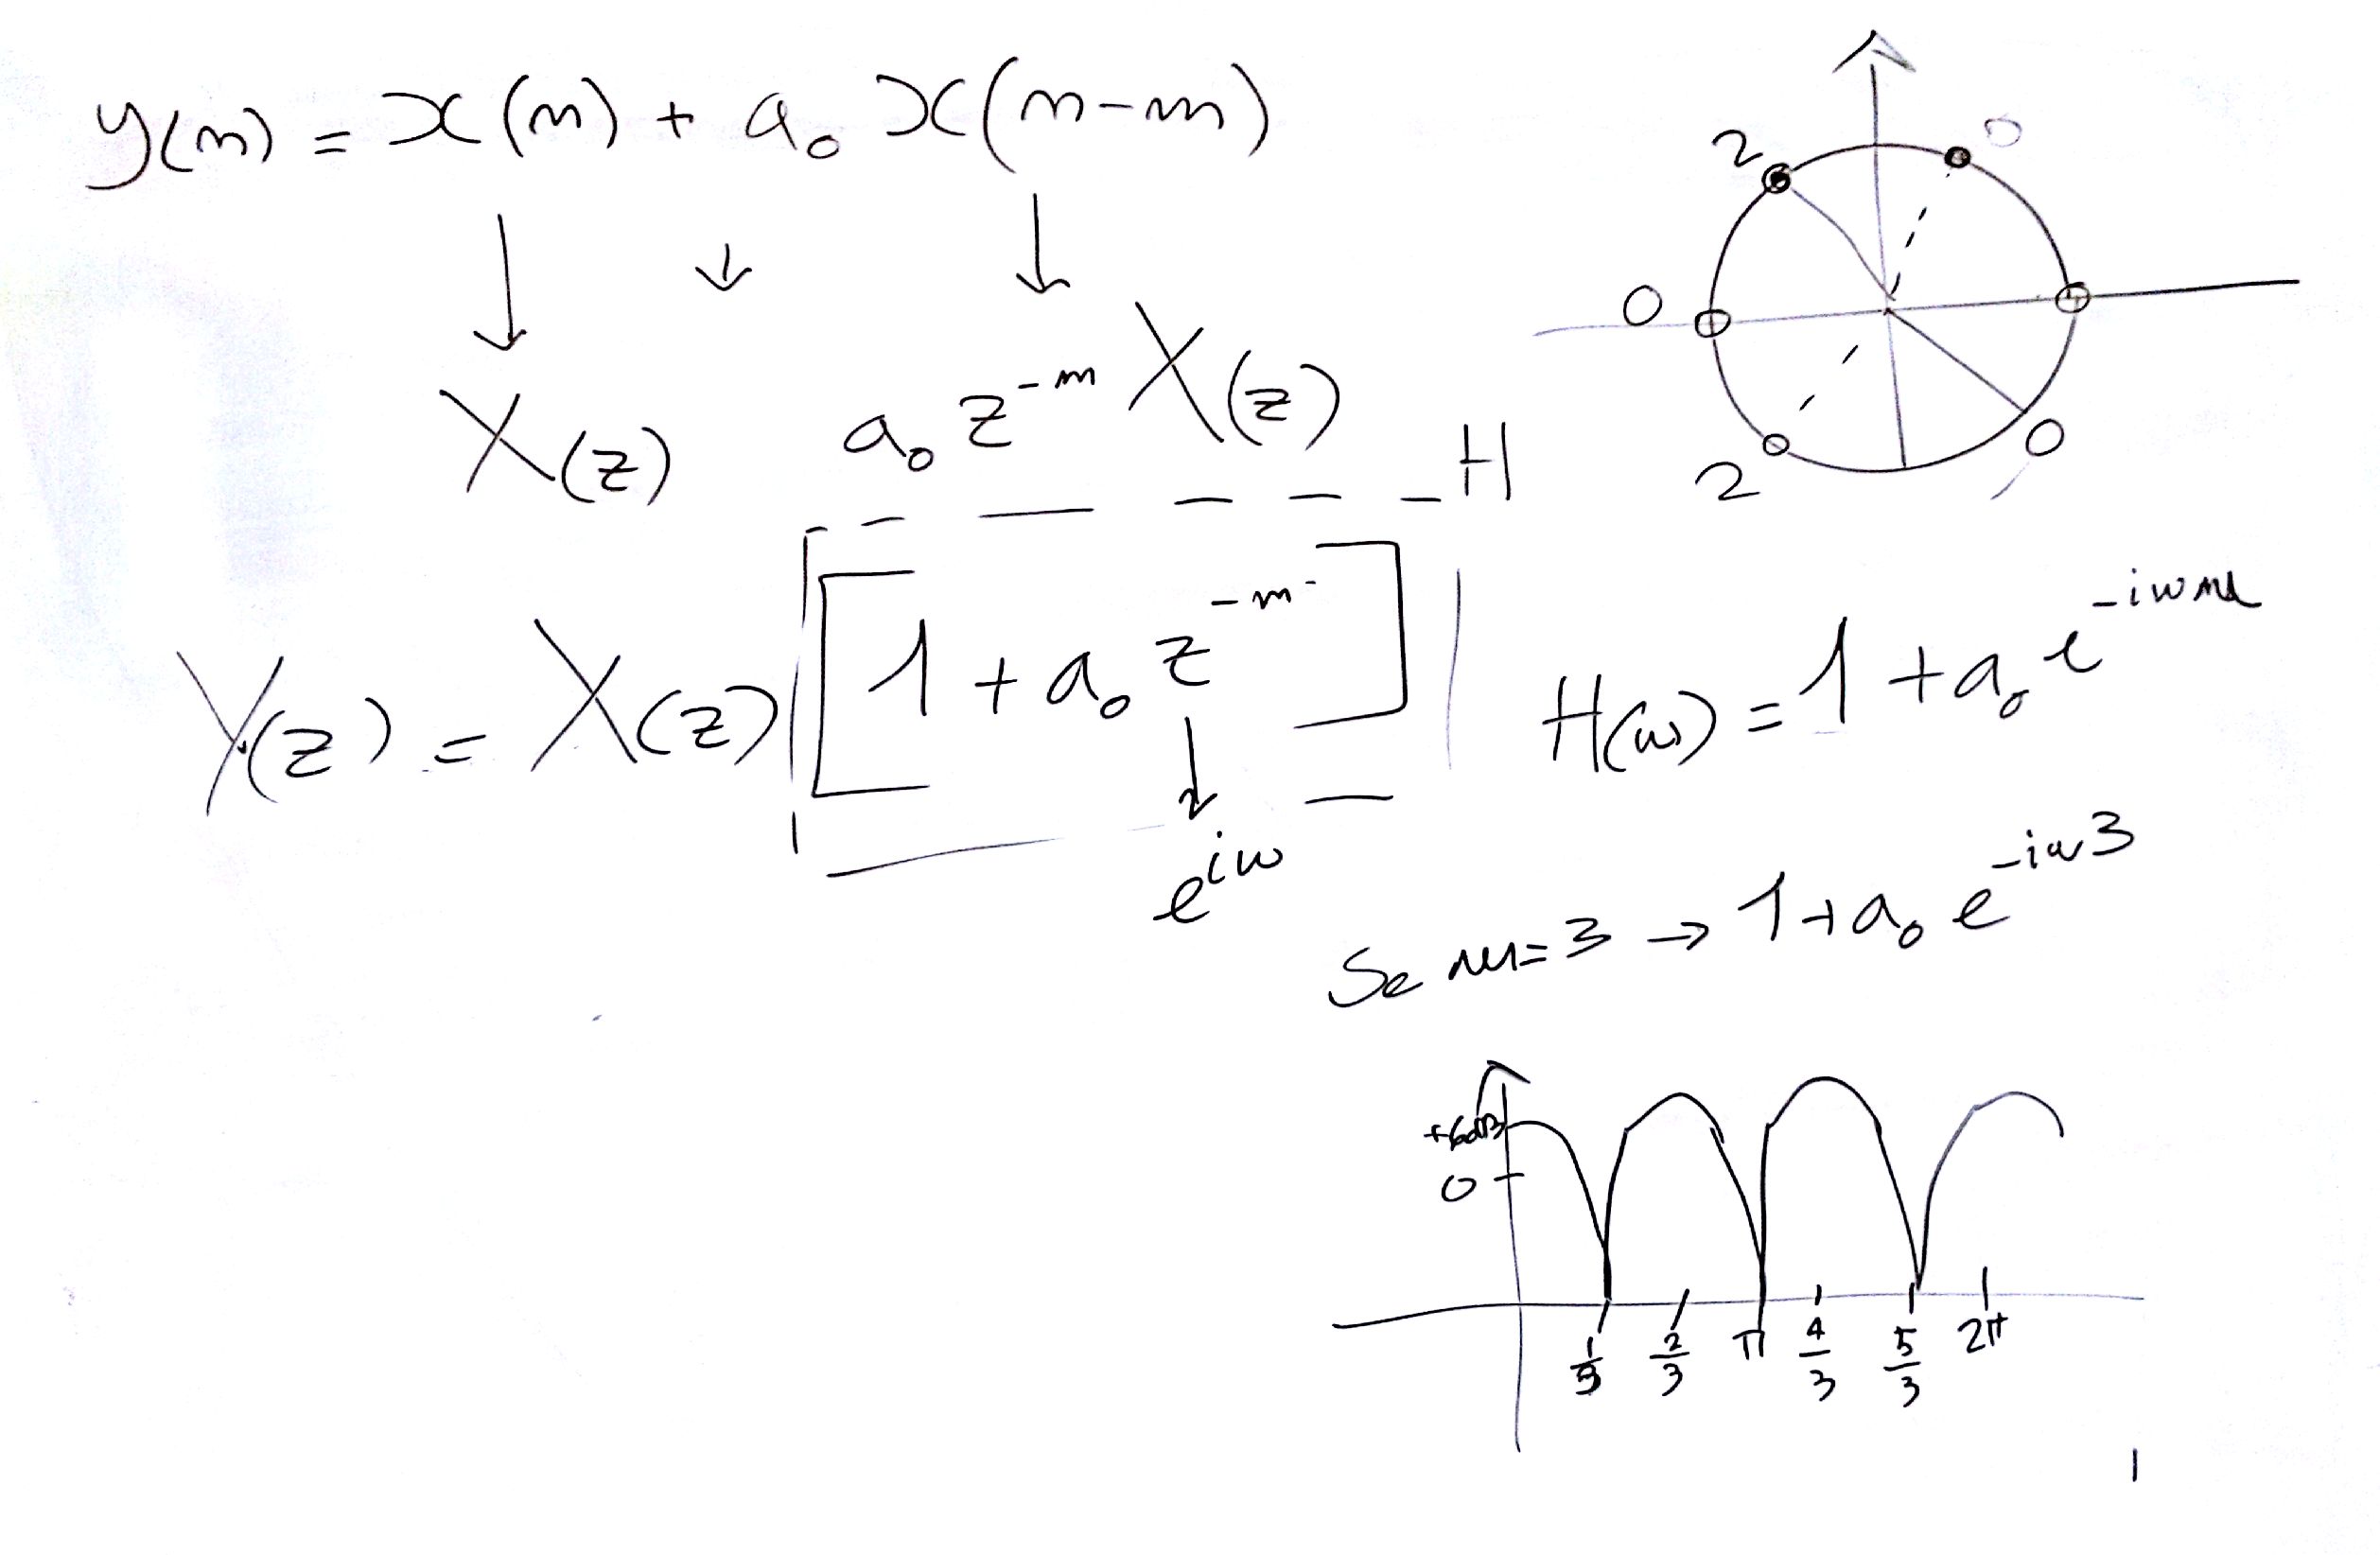 y(n) = x(n) + a₀ x(n-m)
X(z) a₀ z⁻ᵐ X(z)
H
Y(z) = X(z) [1 + a₀ z⁻ᵐ]
e^{iω}
2 0
0
2 0
H(ω) = 1 + a₀ e^{-iωm}
Se m=3 → 1+a₀ e^{-iω3}
+6dB
0
1/3 2/3 π 4/3 5/3 2π